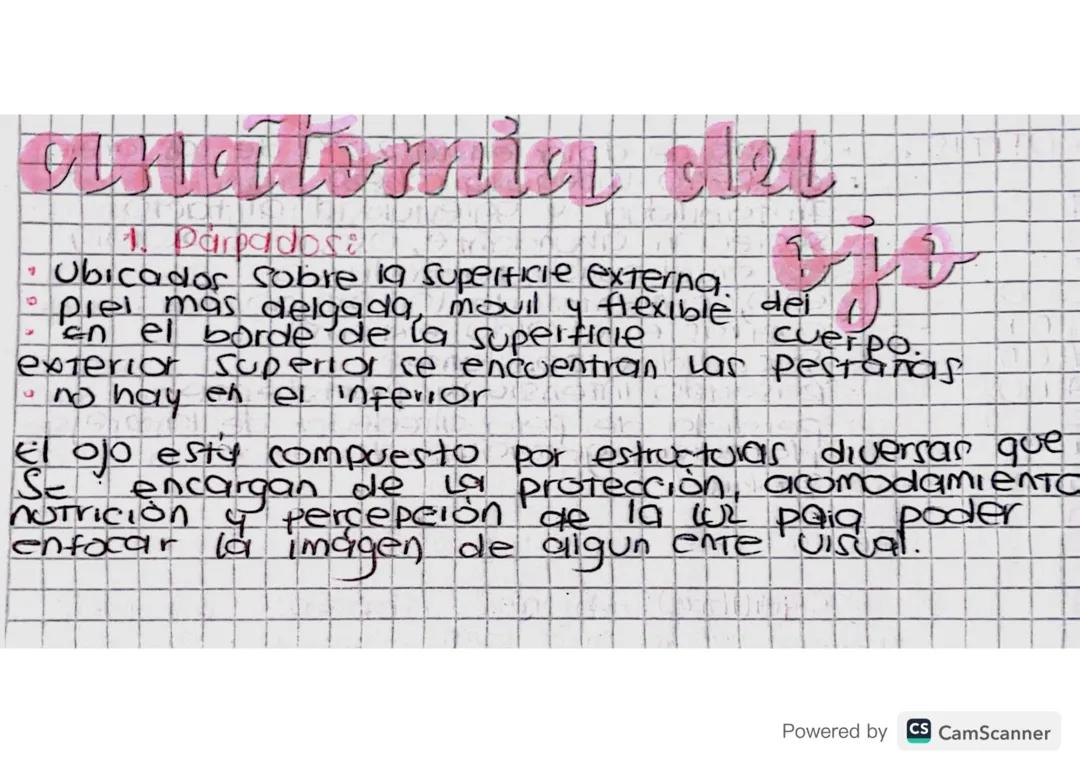 anatomia del
ojo
1. Párpados:
Ubicados sobre la superficie externa.
Piel más delgada, movil y flexible del cuerpo.
En el borde de la superficie
exterior superior se encuentran las pestañas
no hay en el inferior
El ojo está compuesto por estructuras diversas que
se encargan de la protección, acomodamiento
nutrición y percepción de la luz para poder
enfocar la imágen de algun ente visual.
Powered by CS CamScanner